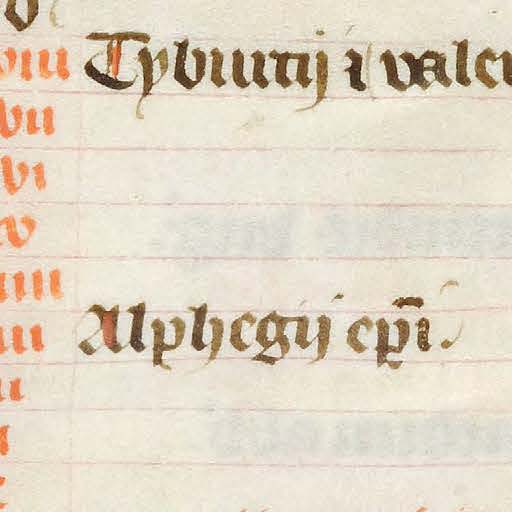 viii Tyburtij ⁊ vale
vii
vi
v
iiii
iii Alphegij ep̄i
ii